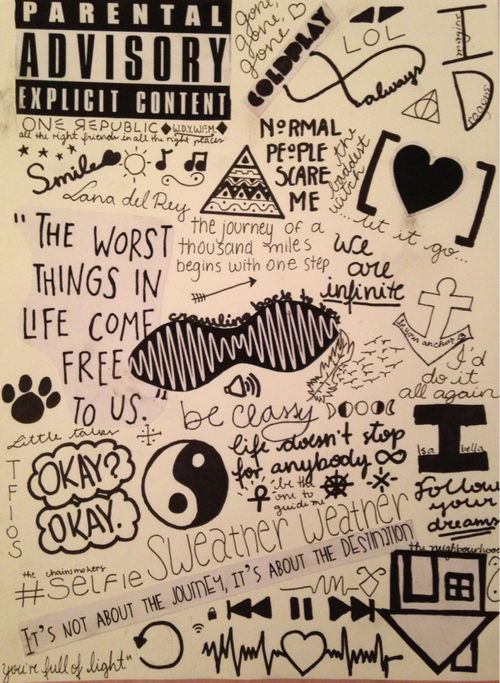 PARENTAL
ADVISORY
EXPLICIT CONTENT
gone,
gone,
gone
COLDPLAY
LOL
always
imagine
ONE REPUBLIC
W.D.Y.W.F.M.
all the right friends in all the right places
Smile
Lana del Rey
NORMAL
PEOPLE
SCARE
ME
the
baddest
witch
...let it go...
the journey of a
thousand miles
begins with one step
we
are
infinite
"THE WORST
THINGS IN
LIFE COME
FREE
TO US."
crawling back to you
be your anchor
I'd
do it
all again
be classy
life doesn't stop
for anybody
be the
one to
guide me
Little talks
TFIOS
OKAY?
OKAY.
I
Isa bella
Follow
your
dreams
sweather weather
the chainsmokers
#SELFIE
IT'S NOT ABOUT THE JOUTNEY, IT'S ABOUT THE DESTINATION
the neighbourhood
you're full of light"